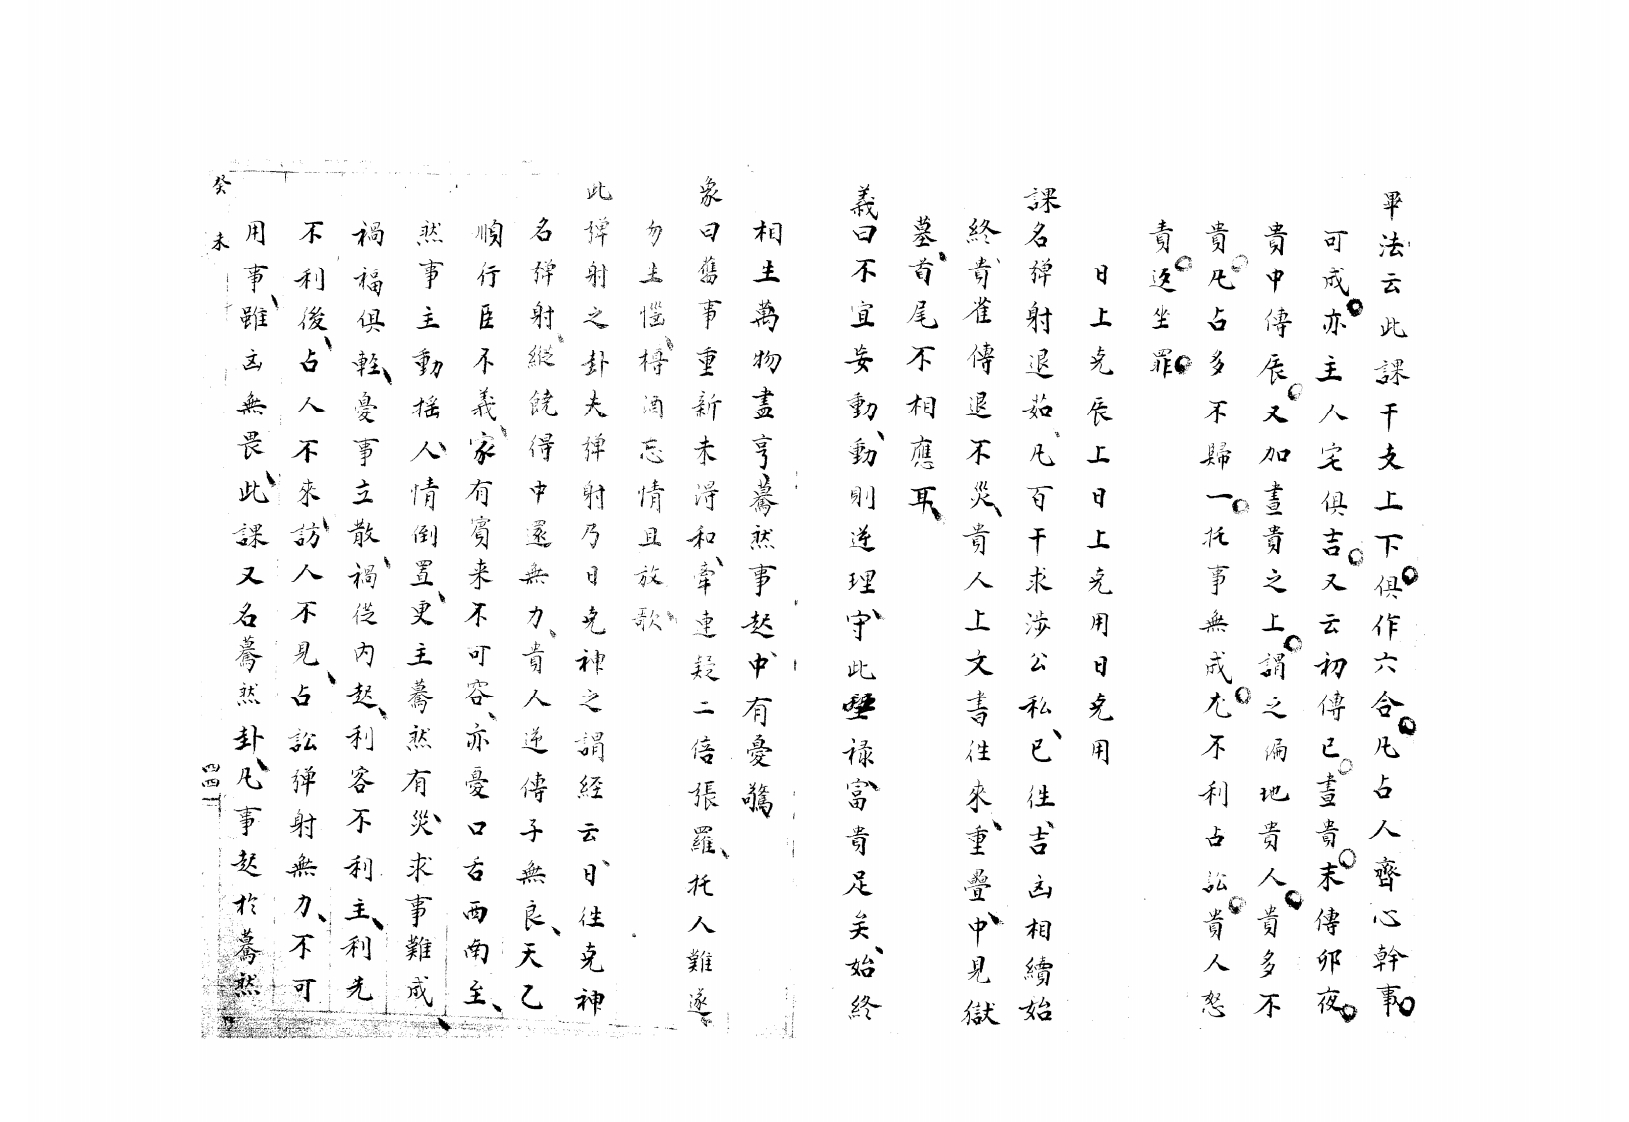 畢法云此課干支上下俱作六合凡占人齊心幹事
可成亦主人宅俱吉又云初傳巳晝貴末傳卯夜
貴中傳辰又加晝貴之上謂之徧地貴人貴多不
貴凡占多不歸一托事無成尤不利占訟貴人怒
責返坐罪
日上尅辰上日上尅用日尅用
課名彈射退茹凡百干求涉公私已徃吉凶相續始
終貴雀傳退不災貴人上文書徃來重疊中見獄
墓首尾不相應耳
義曰不宜妄動動則逆理守此堅祿富貴足矣始終
相生萬物盡亨驀然事起中有憂驚
象曰舊事重新未得和牽連疑二倍張羅托人難遂
勿生惱樽酒忘情且放歌
此彈射之卦夫彈射乃日尅神之謂經云日徃尅神
名彈射縱饒得中還無力貴人逆傳子無良天乙
順行臣不義家有賓来不可容亦憂口舌西南至
然事主動摇人情倒置更主驀然有災求事難成
禍福俱輕憂事立散禍從內起利客不利主利先
不利後占人不來訪人不見占訟彈射無力不可
用事雖凶無畏此課又名驀然卦凡事起於驀然
癸未
四四一